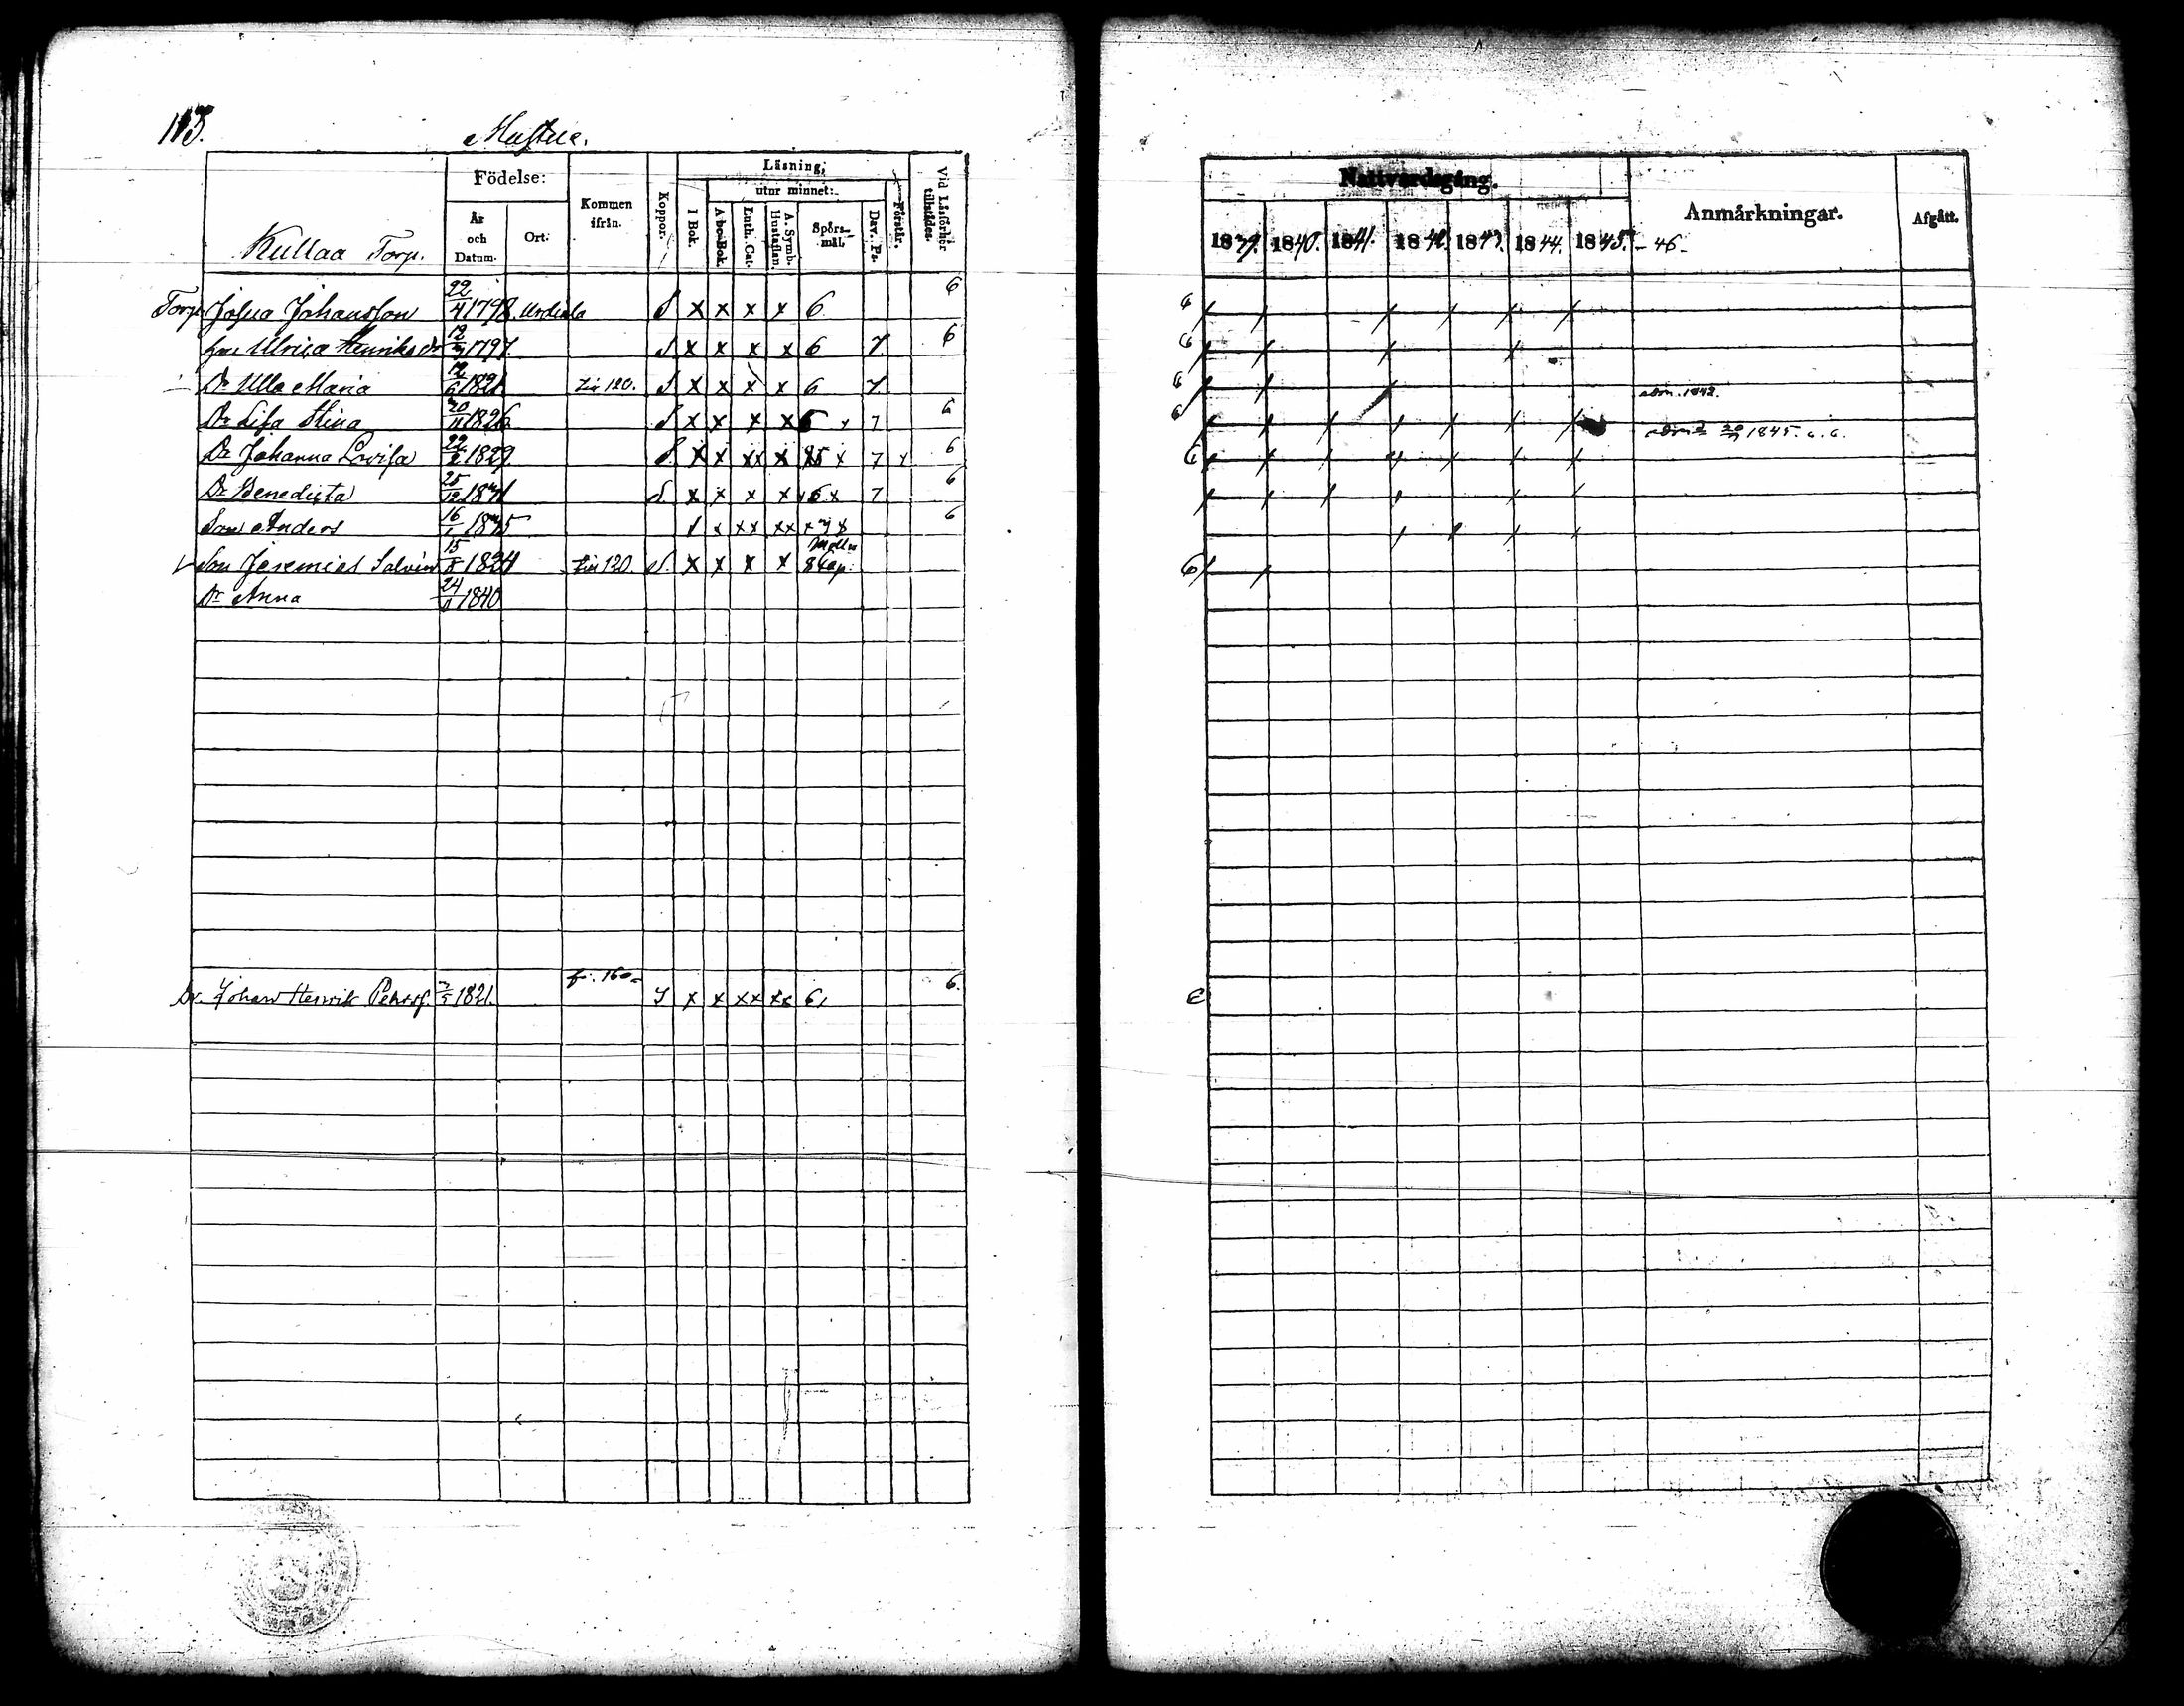 113.
Mustue.
Kullaa Torp.
Födelse:
År och Datum.
Ort:
Kommen ifrån.
Koppor.
Läsning,
I Bok.
utur minnet:
A bo-Bok.
Luth. Cat.
A. Symb. Hustaflan.
Spörsmål.
Dav. Ps.
Förstår.
Vid Läsförhör tillstädes.
Nattvardsgång.
1839. 1840. 1841. 1842. 1843. 1844. 1845. - 46 -
Anmärkningar.
Afgått.
Torp. Josua Johansson 22/4 1798. Urdiala S x x x x 6 6 6 / / / / / /
hu Ulrica Henriksdr 1797. S x x x x 6 7. 6 6 / / / /
Dr Ulla Maria 12/6 1821 Lii 120. S x x x x 6 7. 6 / / / 1842.
Dr Lisa Stina 30/11 1826 S x x x x 6 x 7 6 6 / / / / / / 20/9 1845.
Dr Johanna Lovisa 22/2 1829. S x x xx x 85 x 7 x 6 6 / / / / / /
Dr Benedicta 25/12 1831 S. x x x x 6 x 7 6 / / / / /
Son Anders 16/1 1835 x x xx xx 6 / / / /
Son Jeremias Salvin 15/8 1824 Lii 120. S. x x x x 8 Cap. 6 / /
Dr Anna 24/11 1840
Dr. Johan Henrik Pehrss. 3/5 1821. fr. 160 S x x xx xx 6, 6. 6